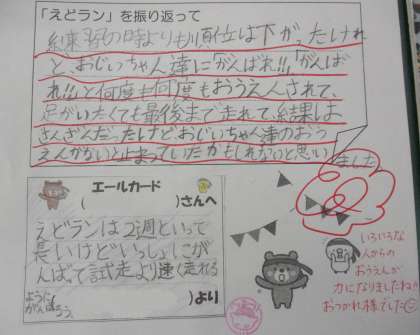 「えどラン」を振り返って
練習の時よりも順位は下がったけれ
ど、おじいちゃん達に「がんばれ!!」「がんば
れ!!」と何度も何度もおうえんされて、
足がいたくても最後まで走れて、結果は
さんざんだったけどおじいちゃん達のおう
えんがないと止まっていたかもしれないと思い
ました
エールカード
( )さんへ
えどランは2週といって
長いけど"いっしょにが
んばって試走より速く走れる
ように
がんばろう。
)より
いろいろな
人からの
おうえんが
力になりましたね!!
おつかれ様でした